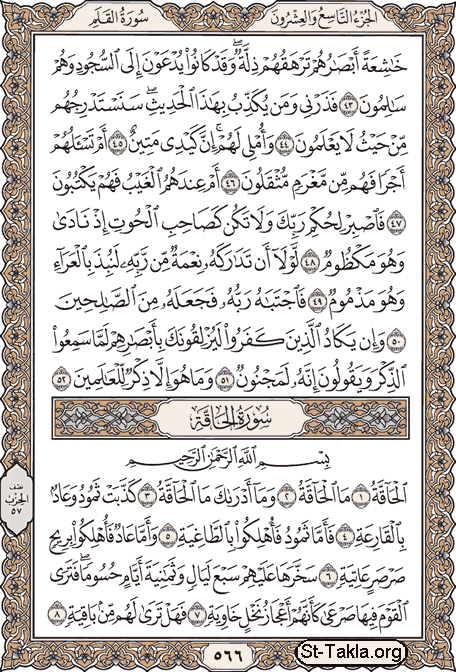 سُورَةُ القَلَمِ
الجُزْءُ التَّاسِعُ وَالعِشْرُونَ
خَاشِعَةً أَبْصَارُهُمْ تَرْهَقُهُمْ ذِلَّةٌ ۖ وَقَدْ كَانُوا۟ يُدْعَوْنَ إِلَى ٱلسُّجُودِ وَهُمْ
سَٰلِمُونَ ٤٣ فَذَرْنِى وَمَن يُكَذِّبُ بِهَٰذَا ٱلْحَدِيثِ ۖ سَنَسْتَدْرِجُهُم
مِّنْ حَيْثُ لَا يَعْلَمُونَ ٤٤ وَأُمْلِى لَهُمْ ۚ إِنَّ كَيْدِى مَتِينٌ ٤٥ أَمْ تَسْـَٔلُهُمْ
أَجْرًا فَهُم مِّن مَّغْرَمٍ مُّثْقَلُونَ ٤٦ أَمْ عِندَهُمُ ٱلْغَيْبُ فَهُمْ يَكْتُبُونَ
٤٧ فَٱصْبِرْ لِحُكْمِ رَبِّكَ وَلَا تَكُن كَصَاحِبِ ٱلْحُوتِ إِذْ نَادَىٰ
وَهُوَ مَكْظُومٌ ٤٨ لَّوْلَآ أَن تَدَٰرَكَهُۥ نِعْمَةٌ مِّن رَّبِّهِۦ لَنُبِذَ بِٱلْعَرَآءِ
وَهُوَ مَذْمُومٌ ٤٩ فَٱجْتَبَٰهُ رَبُّهُۥ فَجَعَلَهُۥ مِنَ ٱلصَّٰلِحِينَ
٥٠ وَإِن يَكَادُ ٱلَّذِينَ كَفَرُوا۟ لَيُزْلِقُونَكَ بِأَبْصَٰرِهِمْ لَمَّا سَمِعُوا۟
ٱلذِّكْرَ وَيَقُولُونَ إِنَّهُۥ لَمَجْنُونٌ ٥١ وَمَا هُوَ إِلَّا ذِكْرٌ لِّلْعَٰلَمِينَ ٥٢
سُورَةُ الحَاقَّةِ
بِسْمِ ٱللَّهِ ٱلرَّحْمَٰنِ ٱلرَّحِيمِ
ٱلْحَآقَّةُ ١ مَا ٱلْحَآقَّةُ ٢ وَمَآ أَدْرَىٰكَ مَا ٱلْحَآقَّةُ ٣ كَذَّبَتْ ثَمُودُ وَعَادٌۢ
بِٱلْقَارِعَةِ ٤ فَأَمَّا ثَمُودُ فَأُهْلِكُوا۟ بِٱلطَّاغِيَةِ ٥ وَأَمَّا عَادٌ فَأُهْلِكُوا۟ بِرِيحٍ
صَرْصَرٍ عَاتِيَةٍ ٦ سَخَّرَهَا عَلَيْهِمْ سَبْعَ لَيَالٍ وَثَمَٰنِيَةَ أَيَّامٍ حُسُومًا ۖ فَتَرَى
ٱلْقَوْمَ فِيهَا صَرْعَىٰ كَأَنَّهُمْ أَعْجَازُ نَخْلٍ خَاوِيَةٍ ٧ فَهَلْ تَرَىٰ لَهُم مِّنۢ بَاقِيَةٍ ٨
نصف
الحزب
٥٧
٥٦٦
St-Takla.org